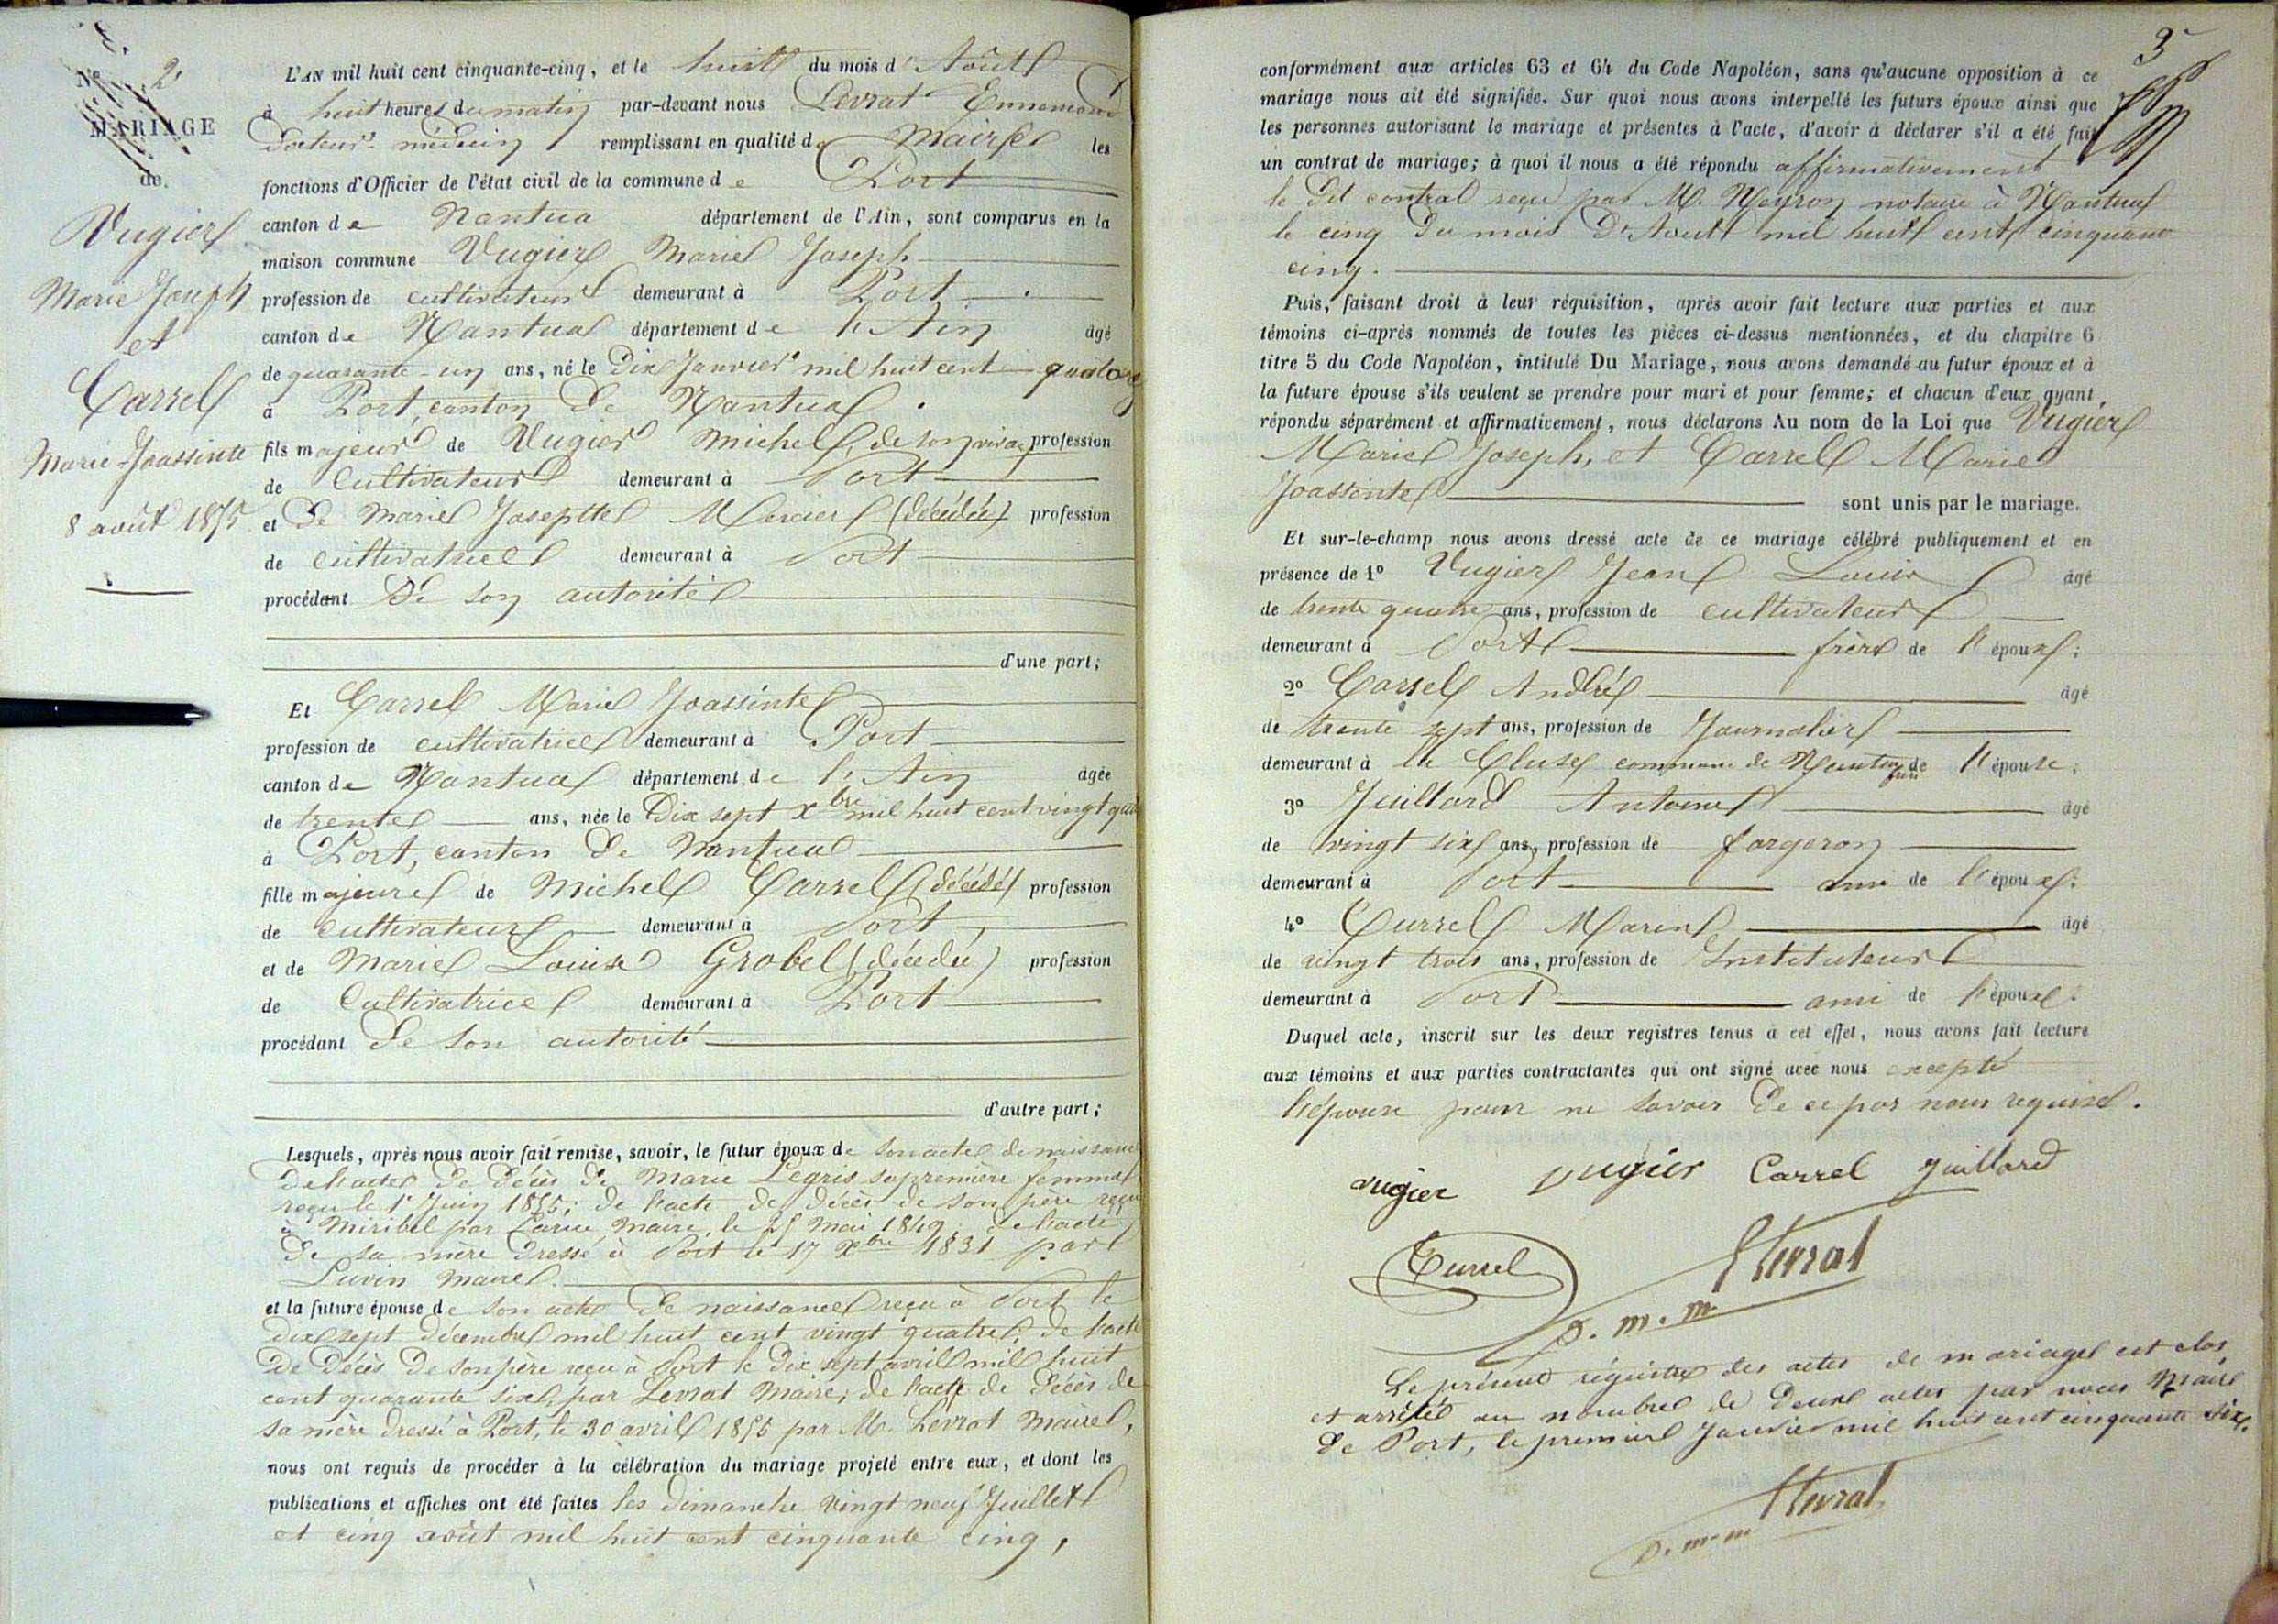 No 2.
MARIAGE
de
Vugier
Marie Joseph
et
Carrel
Marie Joassinte
8 août 1855
L'AN mil huit cent cinquante-cinq, et le huit du mois d'Août
à huit heures du matin par-devant nous Levrat Ennemond
Docteur médecin remplissant en qualité de Maire les
fonctions d'Officier de l'état civil de la commune de Port
canton de Nantua département de l'Ain, sont comparus en la
maison commune Vugier Marie Joseph
profession de cultivateur demeurant à Port
canton de Nantua département de l'Ain âgé
de quarante-un ans, né le Dix Janvier mil huit cent quatorze
à Port, canton de Nantua.
fils majeur de Vugier Michel, de son vivant profession
de Cultivateur demeurant à Port
et de Marie Josephte Mercier (décédée) profession
de cultivatrice demeurant à Port
procédant De son autorité
d'une part;
Et Carrel Marie Joassinte
profession de cultivatrice demeurant à Port
canton de Nantua département de l'Ain âgée
de trente ans, née le Dix sept Xbre mil huit cent vingt
à Port, canton de Nantua
fille majeure de Michel Carrel (décédé) profession
de cultivateur demeurant à Port,
et de Marie Louise Grobel (décédée) profession
de Cultivatrice demeurant à Port
procédant de son autorité
d'autre part;
Lesquels, après nous avoir fait remise, savoir, le futur époux de son acte de naissance
de l'acte de décès de Marie Legris sa première femme
reçu le 1er Juin 1855; de l'acte de décès de son père reçu
à Miribel par maire, le 25 Mai 1849; de l'acte
de sa mère dressé à Port le 17 Xbre 1831 par
Luvin Maire.
et la future épouse de son acte de naissance reçu à Port le
dix sept décembre mil huit cent vingt quatre; de l'acte
de Décès de son père reçu à Port le dix sept avril mil huit
cent quarante six, par Levrat Maire; de l'acte de décès de
sa mère dressé à Port, le 30 avril 1855 par M. Levrat Maire,
nous ont requis de procéder à la célébration du mariage projeté entre eux, et dont les
publications et affiches ont été faites les dimanche vingt neuf Juillet
et cinq août mil huit cent cinquante cinq,
3
conformément aux articles 63 et 64 du Code Napoléon, sans qu'aucune opposition à ce
mariage nous ait été signifiée. Sur quoi nous avons interpellé les futurs époux ainsi que
les personnes autorisant le mariage et présentes à l'acte, d'avoir à déclarer s'il a été fait
un contrat de mariage; à quoi il nous a été répondu affirmativement
le dit contrat reçu par M. Neyron notaire à Nantua
le cinq du mois d'Août mil huit cent cinquante
cinq.
Puis, faisant droit à leur réquisition, après avoir fait lecture aux parties et aux
témoins ci-après nommés de toutes les pièces ci-dessus mentionnées, et du chapitre 6
titre 5 du Code Napoléon, intitulé Du Mariage, nous avons demandé au futur époux et à
la future épouse s'ils veulent se prendre pour mari et pour femme; et chacun d'eux ayant
répondu séparément et affirmativement, nous déclarons Au nom de la Loi que Vugier
Marie Joseph, et Carrel Marie
Joassinte sont unis par le mariage.
Et sur-le-champ nous avons dressé acte de ce mariage célébré publiquement et en
présence de 1º Vugier Jean Louis âgé
de trente quatre ans, profession de cultivateur
demeurant à Port frère de l'époux;
2º Carrel André âgé
de trente sept ans, profession de Journalier
demeurant à la Cluse commune de Nantua de l'épouse;
3º Juillard Antoine âgé
de vingt six ans, profession de forgeron
demeurant à Port ami de l'époux;
4º Curvel Marin âgé
de vingt trois ans, profession de Instituteur
demeurant à Port ami de l'époux.
Duquel acte, inscrit sur les deux registres tenus à cet effet, nous avons fait lecture
aux témoins et aux parties contractantes qui ont signé avec nous excepté
l'épouse pour ne savoir de ce par nous requise.
vugier vugier Carrel Juillard
Curvel
E Levrat
D. m. m
Le présent régistre des actes de mariages est clos
et arrêté au nombre de Deux actes par nous Maire
de Port, le premier Janvier mil huit cent cinquante six.
E Levrat
D. m-m